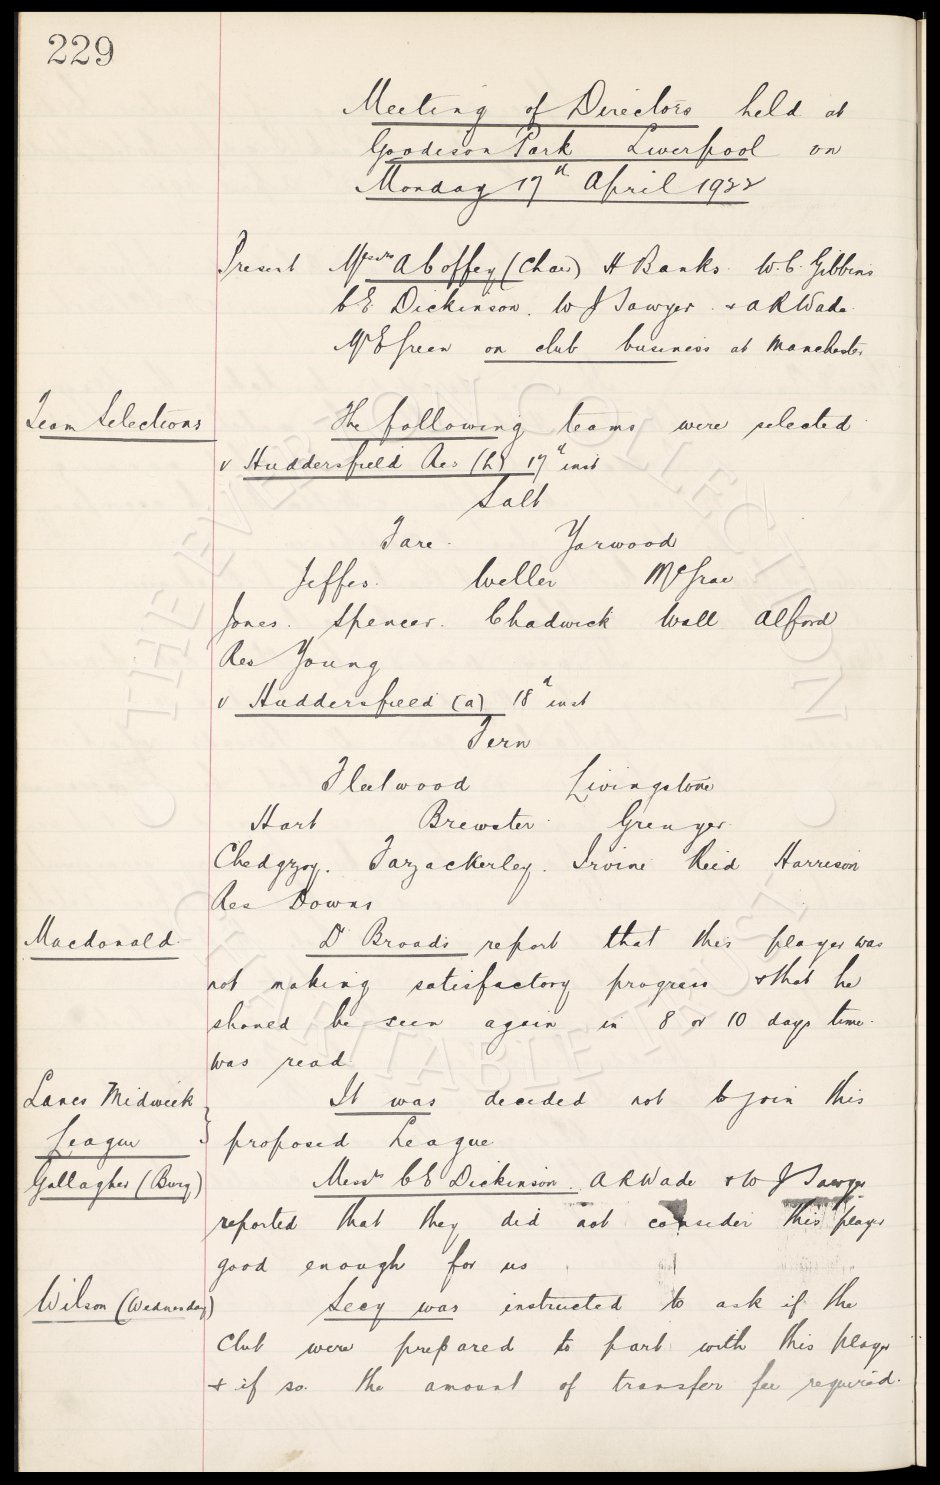 229
Meeting of Directors held at
Goodison Park Liverpool on
Monday 17th April 1922
Present Messrs A Coffey (Chair) H Banks. W.C. Gibbins
C E Dickinson. W J Sawyer. & A R Wade.
Mr E Green on club business at Manchester
Team Selections The following teams were selected
v Huddersfield Res (h) 17th inst
Salt
Tare. Yarwood
Jeffes. Weller McGrae
Jones. Spencer. Chadwick Wall Alford
Res Young
v Huddersfield (a) 18th inst
Fern
Fleetwood Livingstone
Hart Brewster Grenyer.
Chedgzoy. Fazackerley. Irvine Reid Harrison
Res Downs
Macdonald. Dr Broads report that this player was
not making satisfactory progress & that he
should be seen again in 8 or 10 days time.
was read.
Lancs Midweek It was decided not to join this
League } proposed League
Gallagher (Bury) Messrs C E Dickinson. A R Wade & W J Sawyer
reported that they did not consider this player
good enough for us
Wilson (Wednesday) Secy was instructed to ask if the
Club were prepared to part with this player
& if so. the amount of transfer fee required.
THE EVERTON COLLECTION
CHARITABLE TRUST